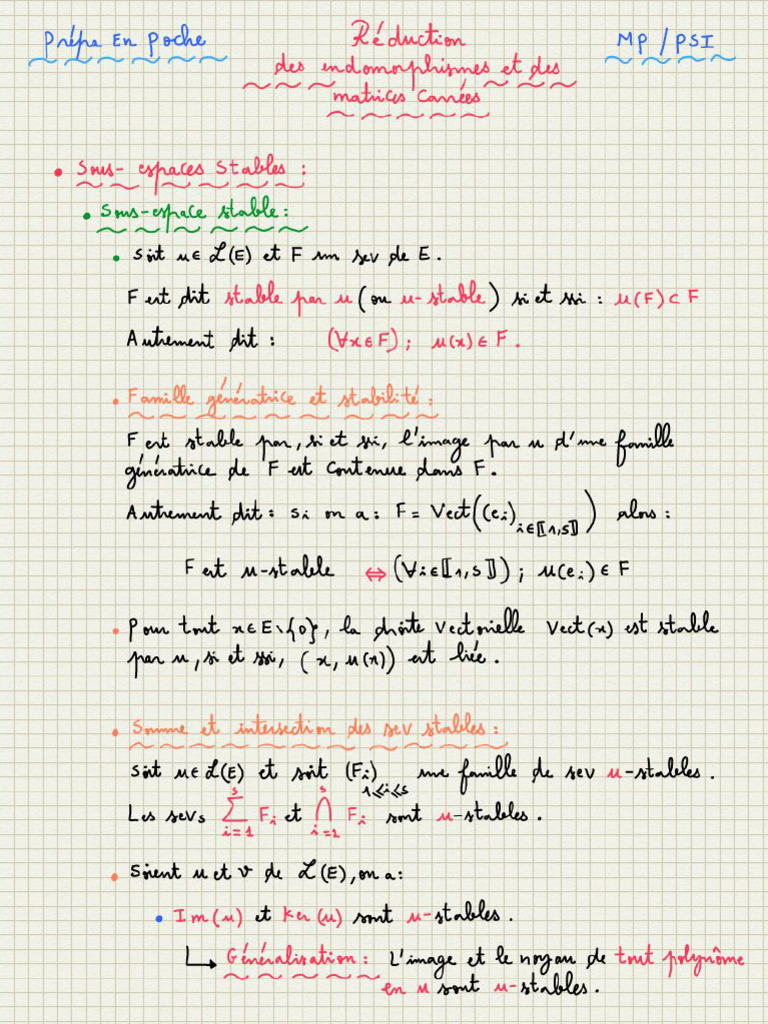 Prépa En Poche
Réduction
des endomorphismes et des
matrices Carrées
MP / PSI
• Sous- espaces Stables :
• Sous-espace stable :
• Soit u ∈ ℒ(E) et F un sev de E .
F est dit stable par u (ou u-stable) si et ssi : u(F) ⊂ F
Autrement dit : (∀x ∈ F) ; u(x) ∈ F .
• Famille génératrice et stabilité :
F est stable par, si et ssi, l'image par u d'une famille
génératrice de F est Contenue dans F .
Autrement dit : Si on a : F = Vect((e_i)_{i∈⟦1,S⟧}) alors :
F est u-stable ⇔ (∀i∈⟦1,S⟧) ; u(e_i) ∈ F
• Pour tout x∈E\{0}, la droite Vectorielle Vect(x) est stable
par u, si et ssi, (x, u(x)) est liée .
• Somme et intersection des sev stables :
Soit u∈ℒ(E) et soit (F_i)_{1⩽i⩽s} une famille de sev u-stables .
Les sevs ∑_{i=1}^{s} F_i et ⋂_{i=1}^{s} F_i sont u-stables .
• Soient u et v de ℒ(E), on a :
• Im(u) et Ker(u) sont u-stables .
↳ Généralisation : L'image et le noyau de tout polynôme
en u sont u-stables .